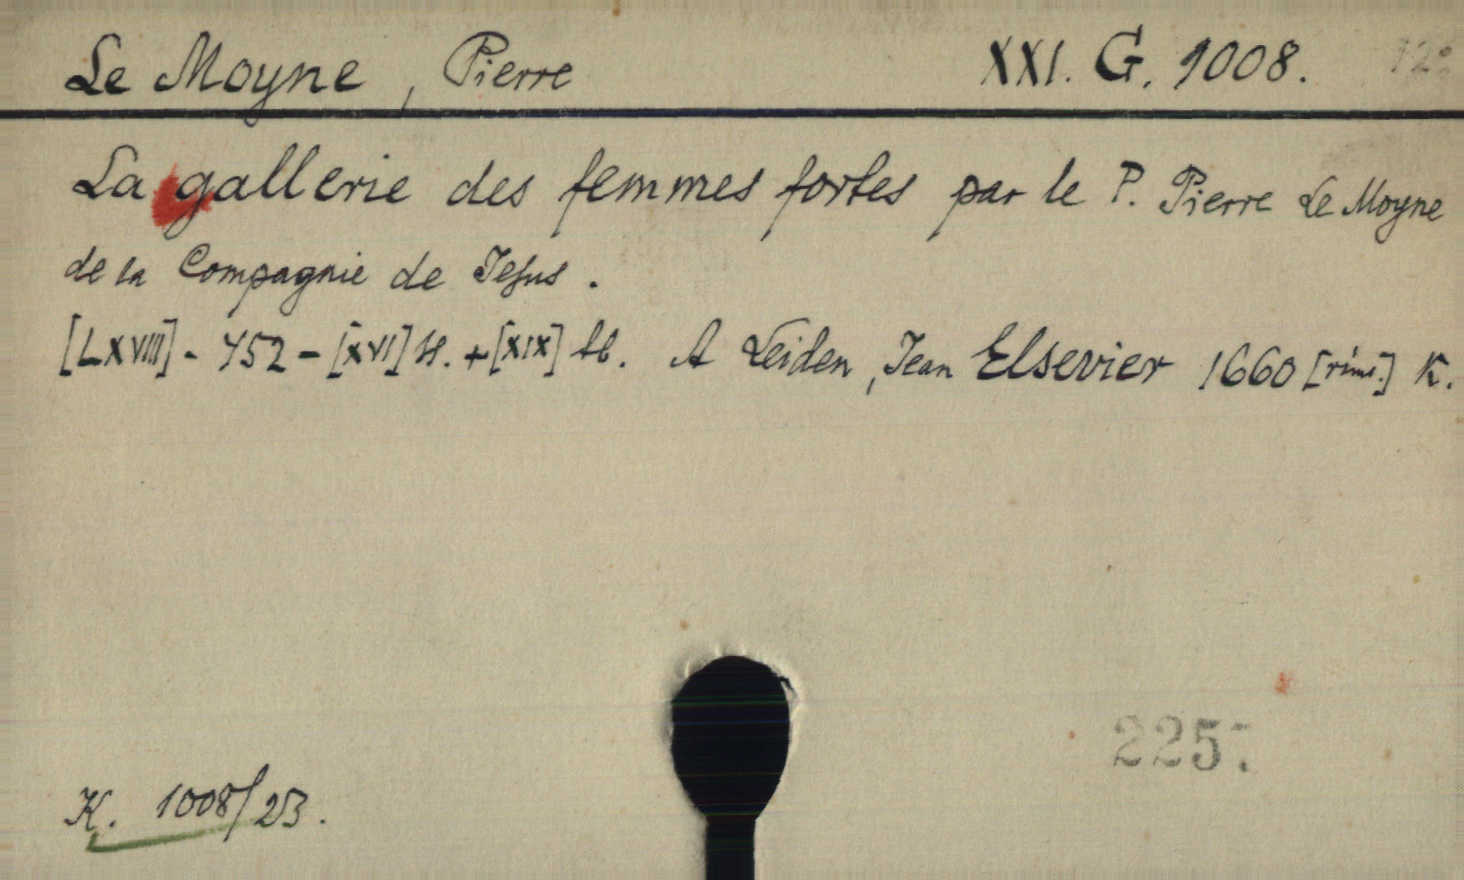 Le Moyne, Pierre XXI. G. 1008. 12°
La gallerie des femmes fortes par le P. Pierre Le Moyne
de la Compagnie de Jesus.
[LXVIII] - 452 - [XVI] H. + [XIX] tb. A Leiden, Jean Elsevier 1660 [rims.] K.
K. 1008/23.
225